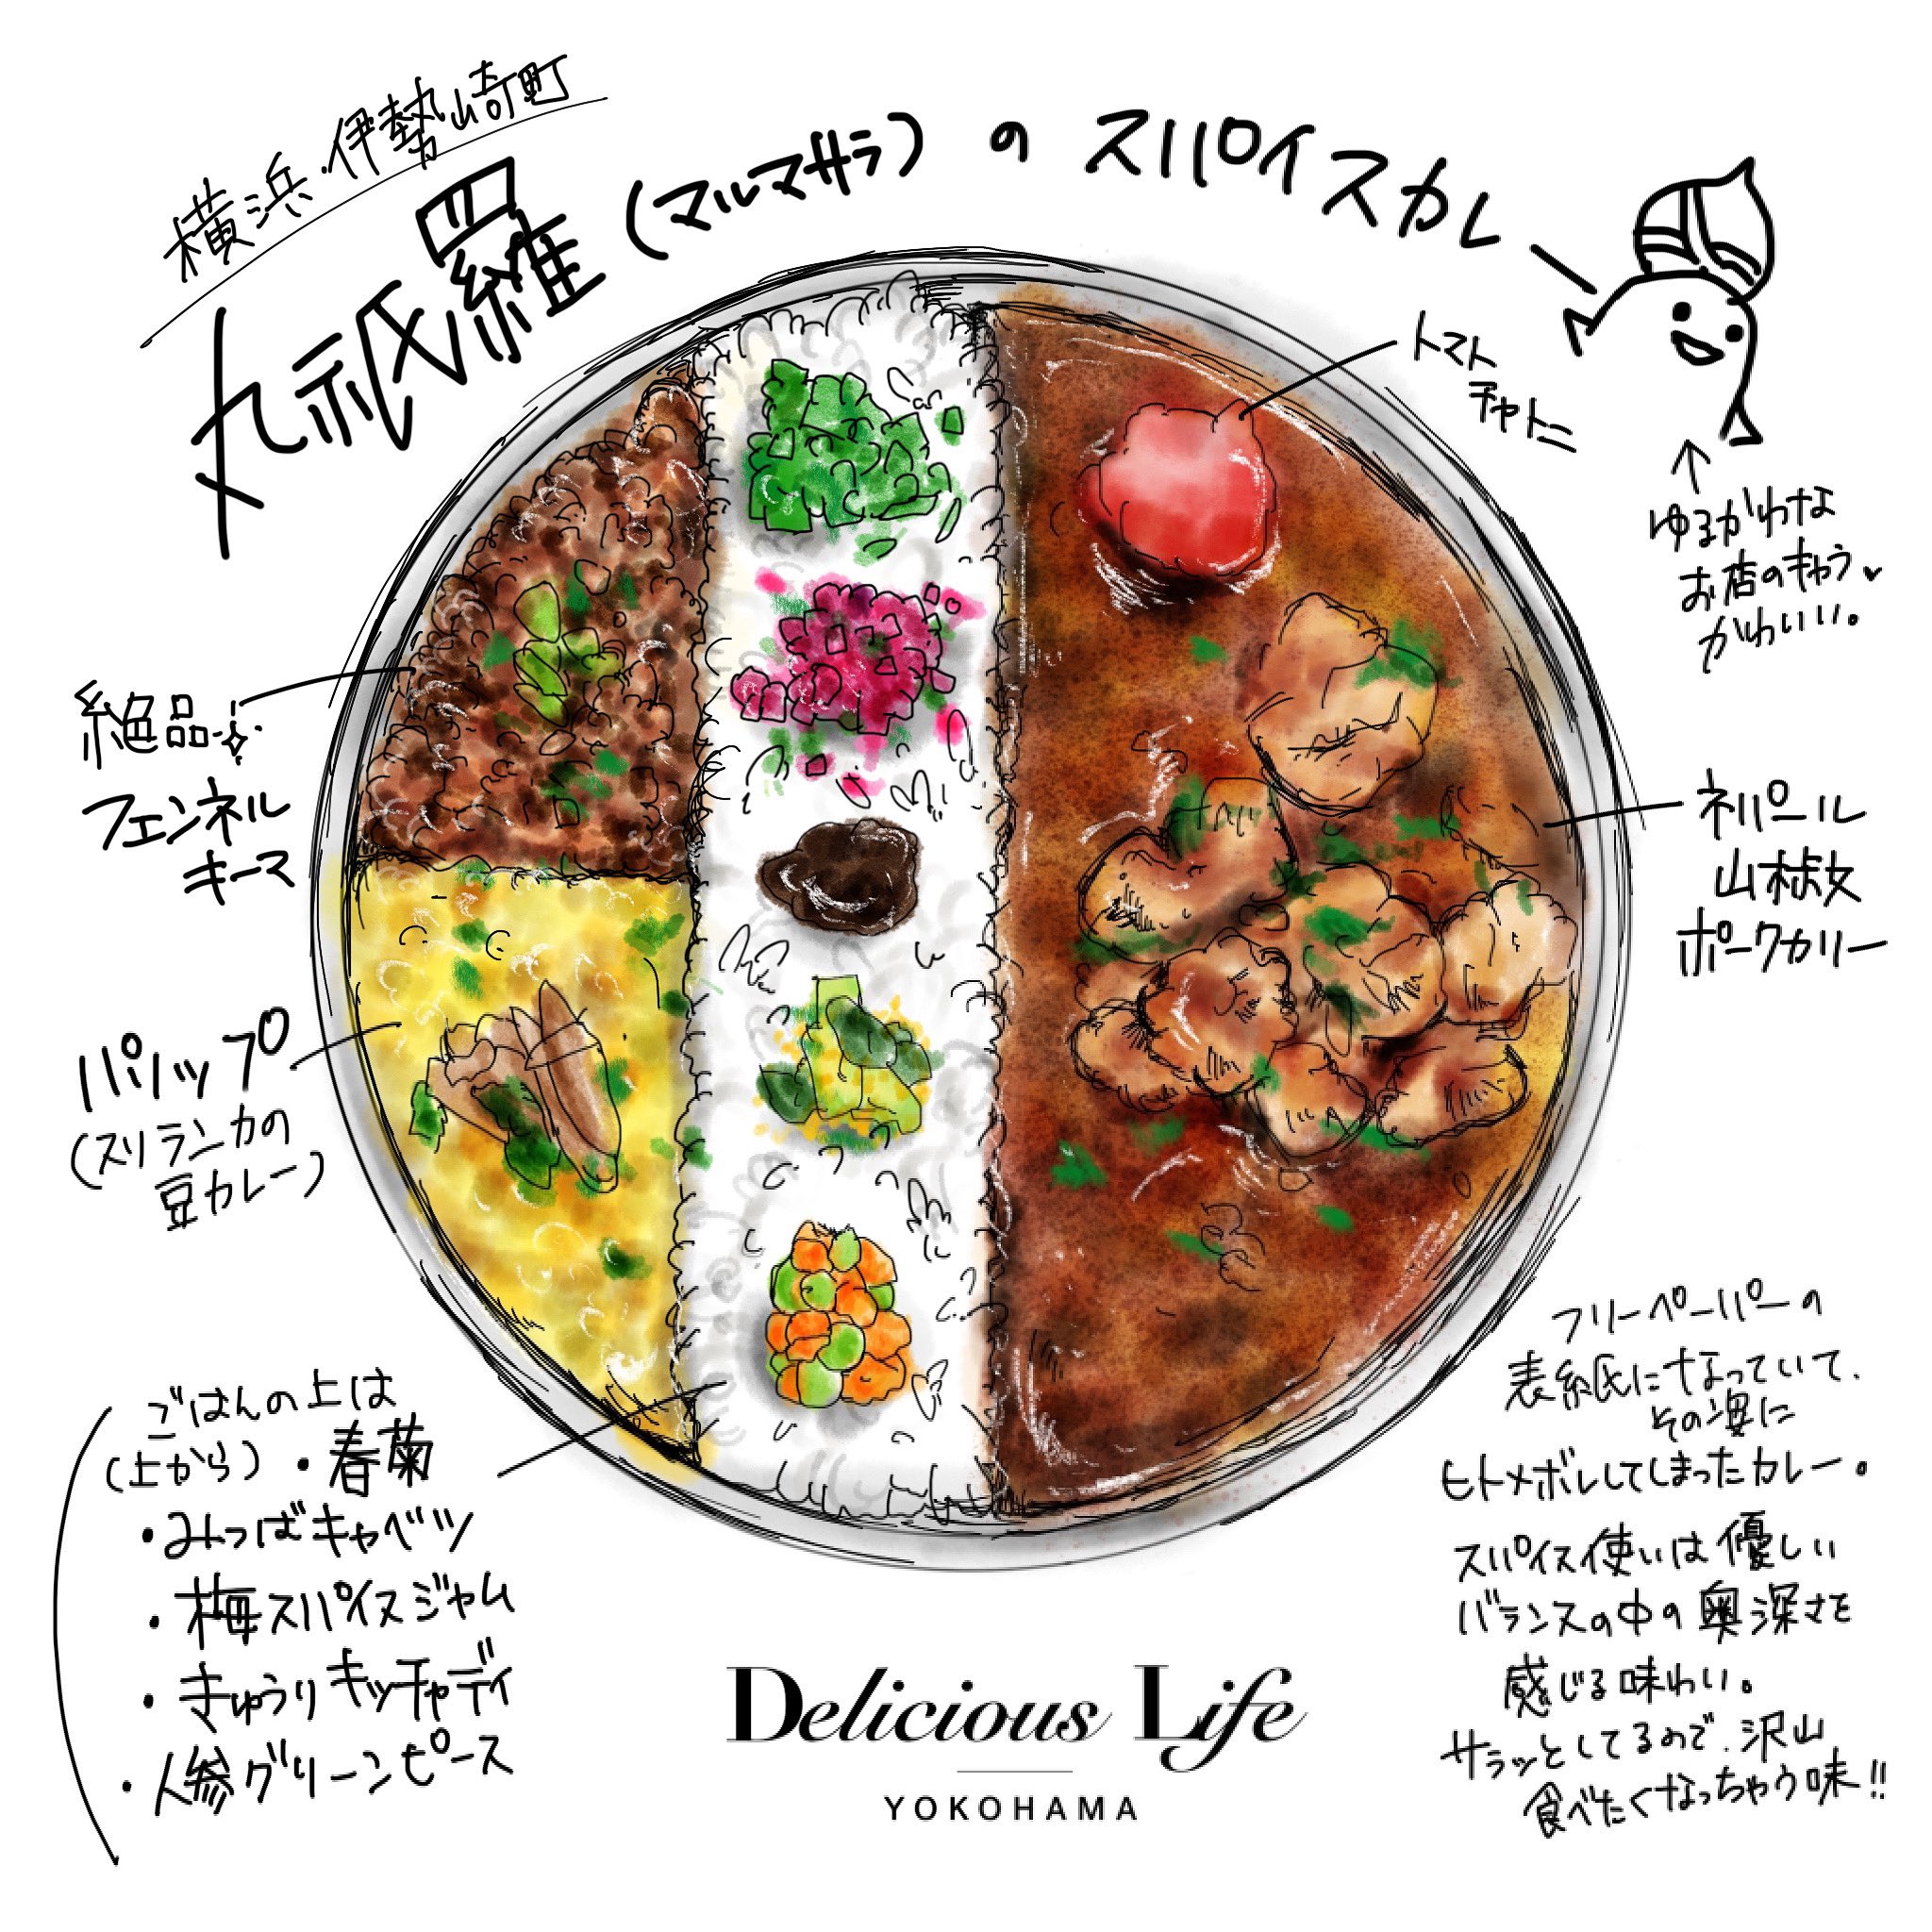 横浜・伊勢山崎町
丸祇羅（マルマサラ）のスパイスカレー
トマト
チャトニ
↑
ゆるかわな
お店のキャラ♥
かわいい。
絶品
フェンネル
キーマ
ネパール
山椒
ポークカリー
パリップ
（スリランカの
豆カレー）
ごはんの上は
（上から）・春菊
・みつばキャベツ
・梅スパイスジャム
・きゅうりキッチャディ
・人参グリーンピース
フリーペーパーの
表紙になっていて、
その姿に
ヒトメボレしてしまったカレー。
スパイス使いは優しい
バランスの中の奥深さを
感じる味わい。
サラッとしてるので、沢山
食べたくなっちゃう味!!
Delicious Life
YOKOHAMA